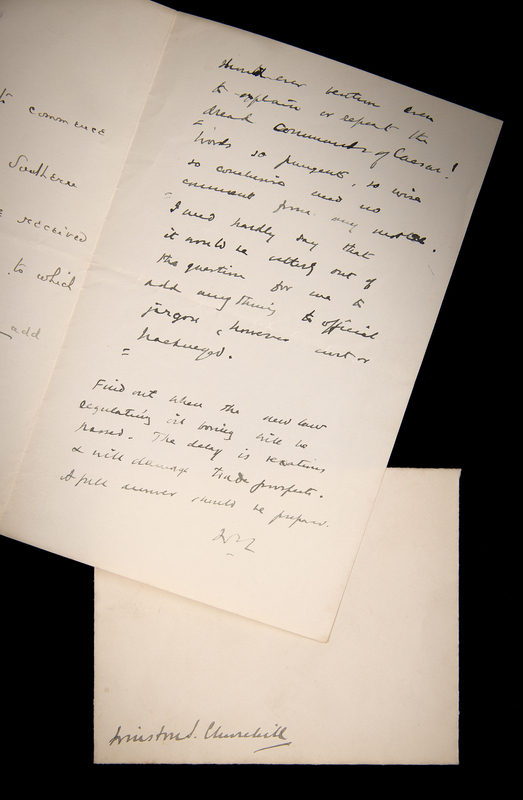 to commence
Southern
received
to which
add
venture even
to explain or repeat the
dread commands of Caesar!
Words so pungent, so wise
so conclusive need no
comment from any
I need hardly say that
it would be utterly out of
the question for me to
add anything to official
jargon, however curt or
hackneyed.
Find out when the new law
regulating oil boring will be
passed. The delay is vexatious
& will damage trade prospects.
A full answer should be prepared.
Winston S. Churchill